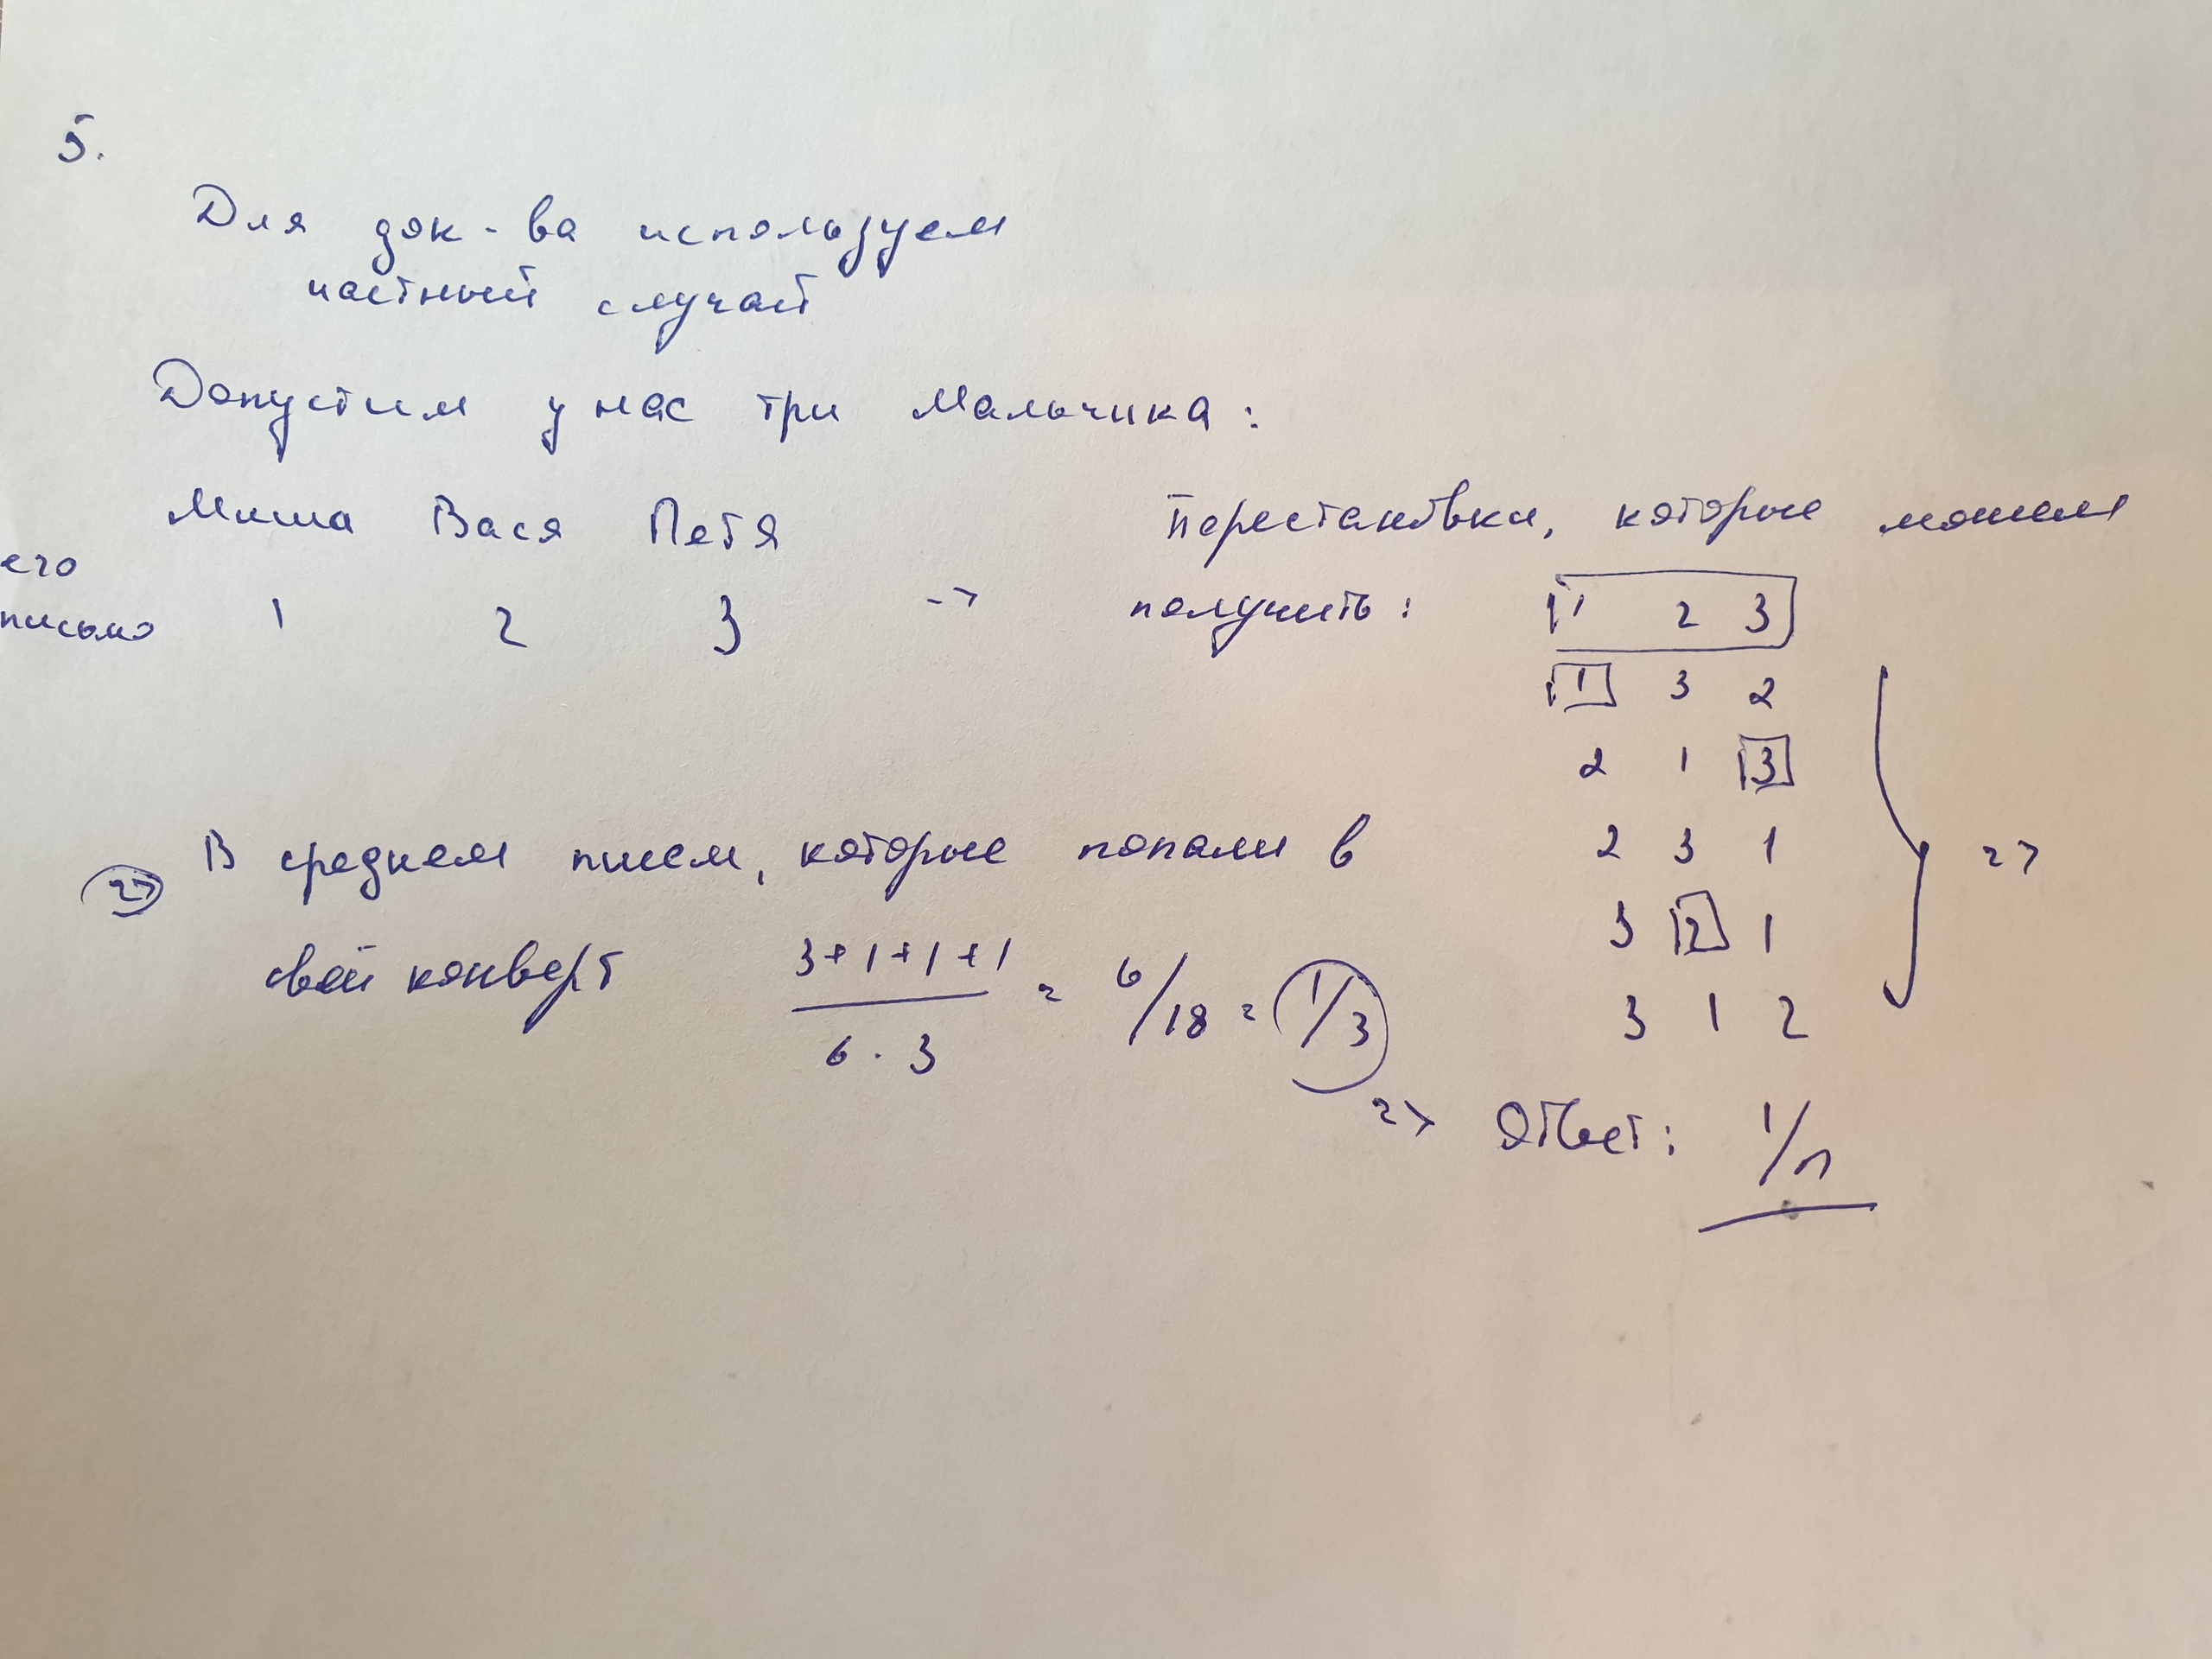 5.
Для док-ва используем
частный случай
Допустим у нас три мальчика:
Миша Вася Петя
его
письмо 1 2 3 ->
Перестановки, которые можем
получить: 1 2 3
1 3 2
2 1 3
2 3 1
3 2 1
3 1 2
=>
=> В среднем писем, которые попали в
свой конверт 3+1+1+1 / 6·3 = 6/18 = 1/3
=> Ответ: 1/n